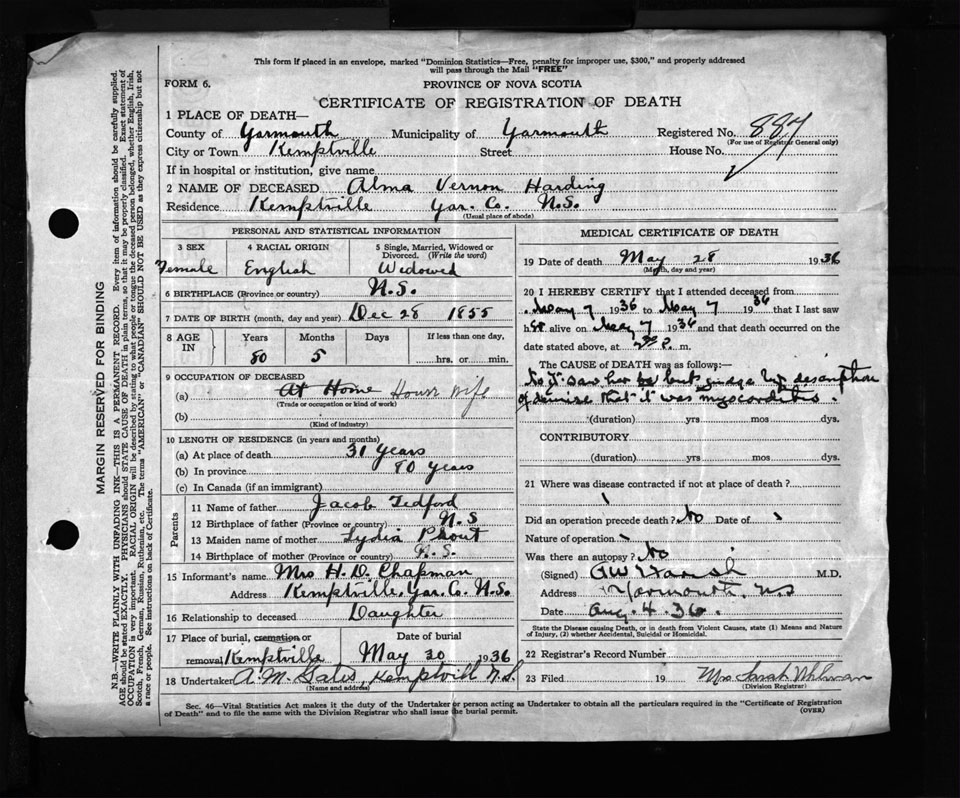 This form if placed in an envelope, marked "Dominion Statistics—Free, penalty for improper use, $300," and properly addressed
will pass through the Mail "FREE"
FORM 6.
PROVINCE OF NOVA SCOTIA
CERTIFICATE OF REGISTRATION OF DEATH
1 PLACE OF DEATH—
County of Yarmouth Municipality of Yarmouth Registered No. 887
(For use of Registrar General only)
City or Town Kemptville Street House No.
If in hospital or institution, give name
2 NAME OF DECEASED Alma Vernon Harding
Residence Kemptville Yar. Co. N.S.
(Usual place of abode)
PERSONAL AND STATISTICAL INFORMATION
3 SEX 4 RACIAL ORIGIN 5 Single, Married, Widowed or
Divorced. (Write the word)
Female English Widowed
6 BIRTHPLACE (Province or country) N.S.
7 DATE OF BIRTH (month, day and year) Dec 28 1855
8 AGE IN Years Months Days If less than one day,
80 5 hrs. or min.
9 OCCUPATION OF DECEASED
(a) At Home House Wife
(Trade or occupation or kind of work)
(b)
(Kind of industry)
10 LENGTH OF RESIDENCE (in years and months)
(a) At place of death 31 years
(b) In province 80 years
(c) In Canada (if an immigrant)
Parents
11 Name of father Jacob Tedford
12 Birthplace of father (Province or country) N.S
13 Maiden name of mother Lydia
14 Birthplace of mother (Province or country) N.S.
15 Informant's name Mrs H. D. Chapman
Address Kemptville, Yar. Co. N.S.
16 Relationship to deceased Daughter
17 Place of burial, cremation or Date of burial
removal Kemptville May 30 1936
18 Undertaker A. M. Gates, Kemptvill N.S.
(Name and address)
MEDICAL CERTIFICATE OF DEATH
19 Date of death May 28 1936
(Month, day and year)
20 I HEREBY CERTIFY that I attended deceased from
May 7 1936 to May 7 1936 that I last saw
her alive on May 7 1936 and that death occurred on the
date stated above, at P. m.
The CAUSE OF DEATH was as follows:—
saw her but judge by description
of demise that it was myocarditis.
(duration) yrs mos dys.
CONTRIBUTORY
(duration) yrs mos dys.
21 Where was disease contracted if not at place of death?
Did an operation precede death? No Date of
Nature of operation
Was there an autopsy? No
(Signed) M.D.
Address Yarmouth, N.S
Date Aug. 4. 36.
State the Disease causing Death, or in death from Violent Causes, state (1) Means and Nature
of Injury, (2) whether Accidental, Suicidal or Homicidal.
22 Registrar's Record Number
23 Filed 19 Mrs Sarah
(Division Registrar)
Sec. 46—Vital Statistics Act makes it the duty of the Undertaker or person acting as Undertaker to obtain all the particulars required in the "Certificate of Registration
of Death" and to file the same with the Division Registrar who shall issue the burial permit. (OVER)
MARGIN RESERVED FOR BINDING
N.B.—WRITE PLAINLY WITH UNFADING INK—THIS IS A PERMANENT RECORD. Every item of information should be carefully supplied.
AGE should be stated EXACTLY. PHYSICIANS should STATE CAUSE OF DEATH in plain terms, so that it may be properly classified. Exact statement of
OCCUPATION is very important. RACIAL ORIGIN will be described by stating to what people or tongue the deceased person belonged, whether English, Irish,
Scotch, French, German, Russian, Ruthenian, etc. The terms "AMERICAN" or "CANADIAN" SHOULD NOT BE USED as they express citizenship but not
a race or people. See instructions on back of Certificate.